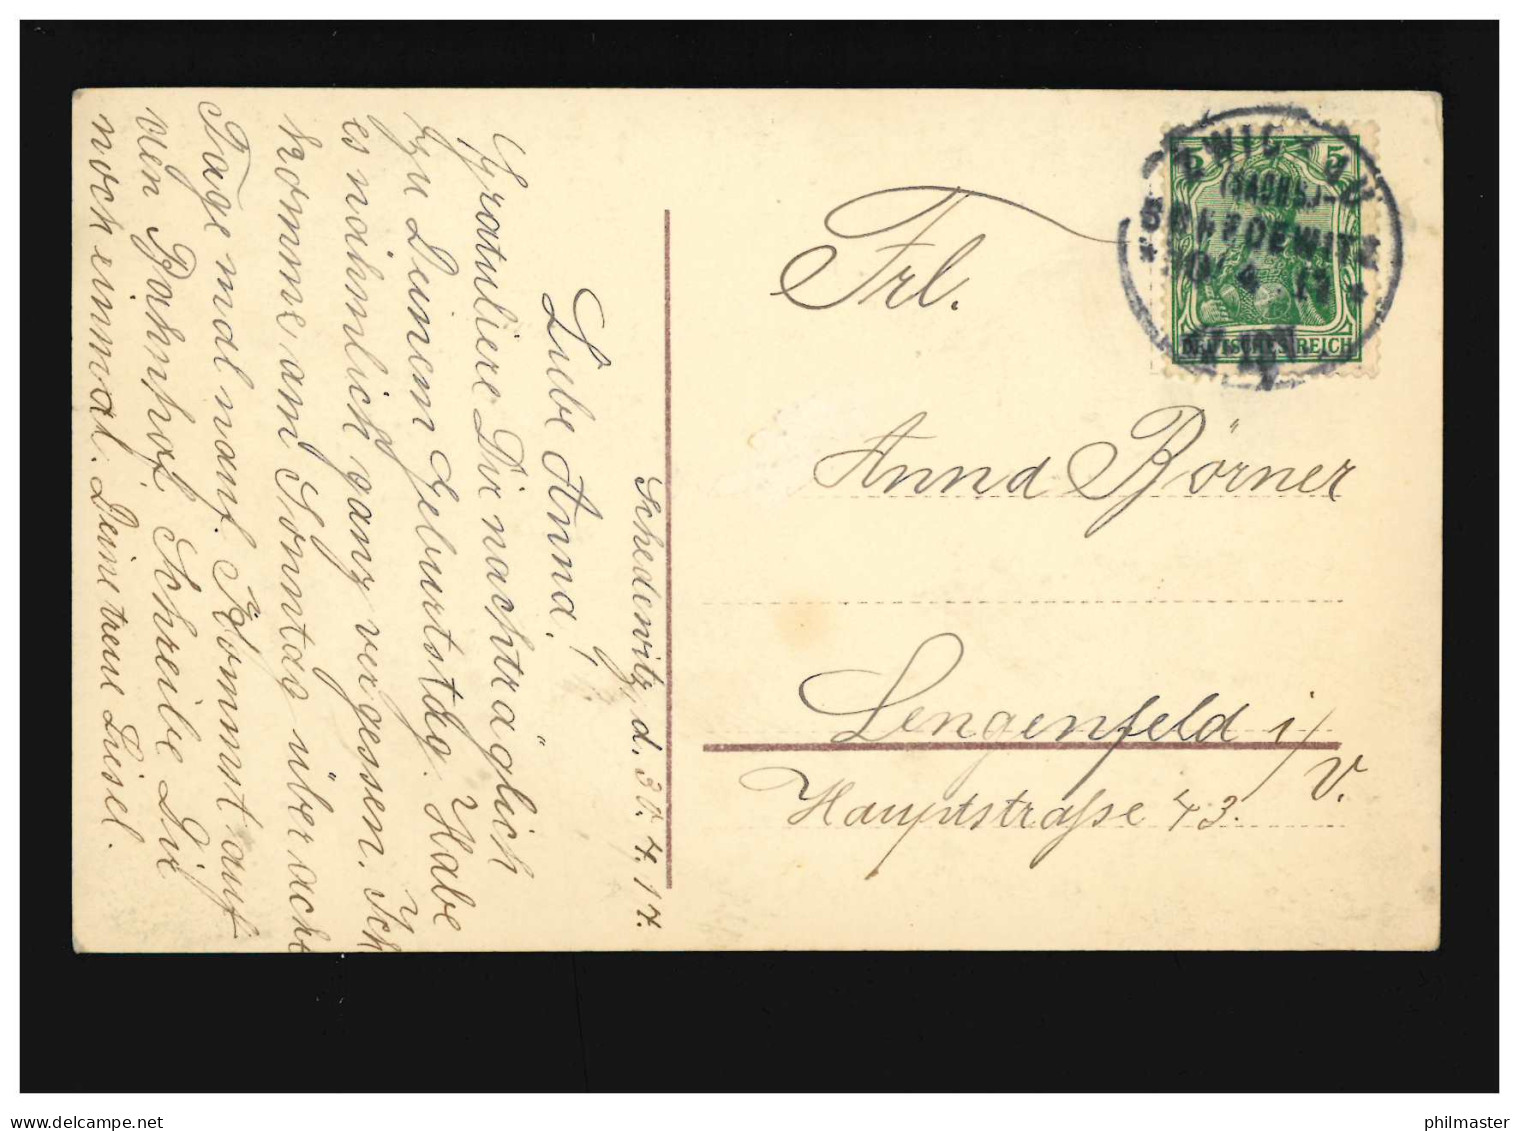 Schedewitz, d. 30. 4. 17.
Liebe Anna!
Gratuliere Dir nachträglich
zu Deinem Geburtstag. Habe
es nähmlich ganz vergessen. Ich
komme am Sonntag über acht
Tage mal nauf. Kommst auf
den Bahnhof. Schreibe Dir
noch einmal. Deine treue Liesel.
Frl.
Anna Börner
Lengenfeld i/V.
Hauptstraße 43.
5 5
DEUTSCHES REICH
ZWICKAU
(SACHS.)-
SCHEDEWITZ
philmaster